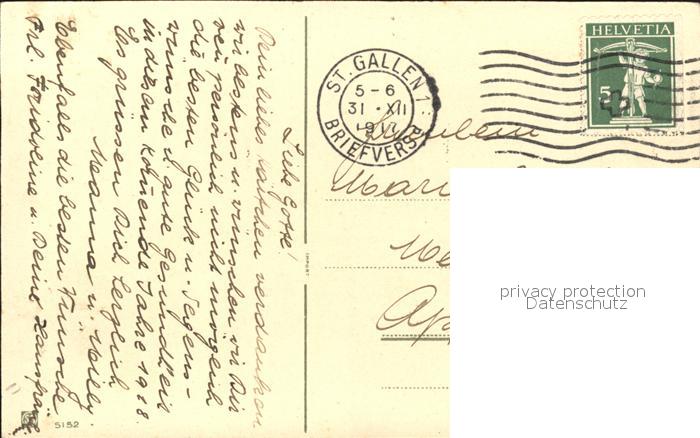 Liebe Gotte!
Dein liebes Kärtchen verdanken
wir bestens u. wünschen wir Dir
persönlich nicht möglich
die besten Glück u. Segens-
wünsche u. gute Gesundheit
in diesem kommende Jahre 1918.
Es grüssen Dich herzlich
Mamma u. Willy.
Ebenfalls die besten Wünsche
Frl. u. Deine
5152
ST. GALLEN 1
5-6
31.XII
BRIEFVERSD
HELVETIA
5
Fräulein
Mari
Ap
privacy protection
Datenschutz